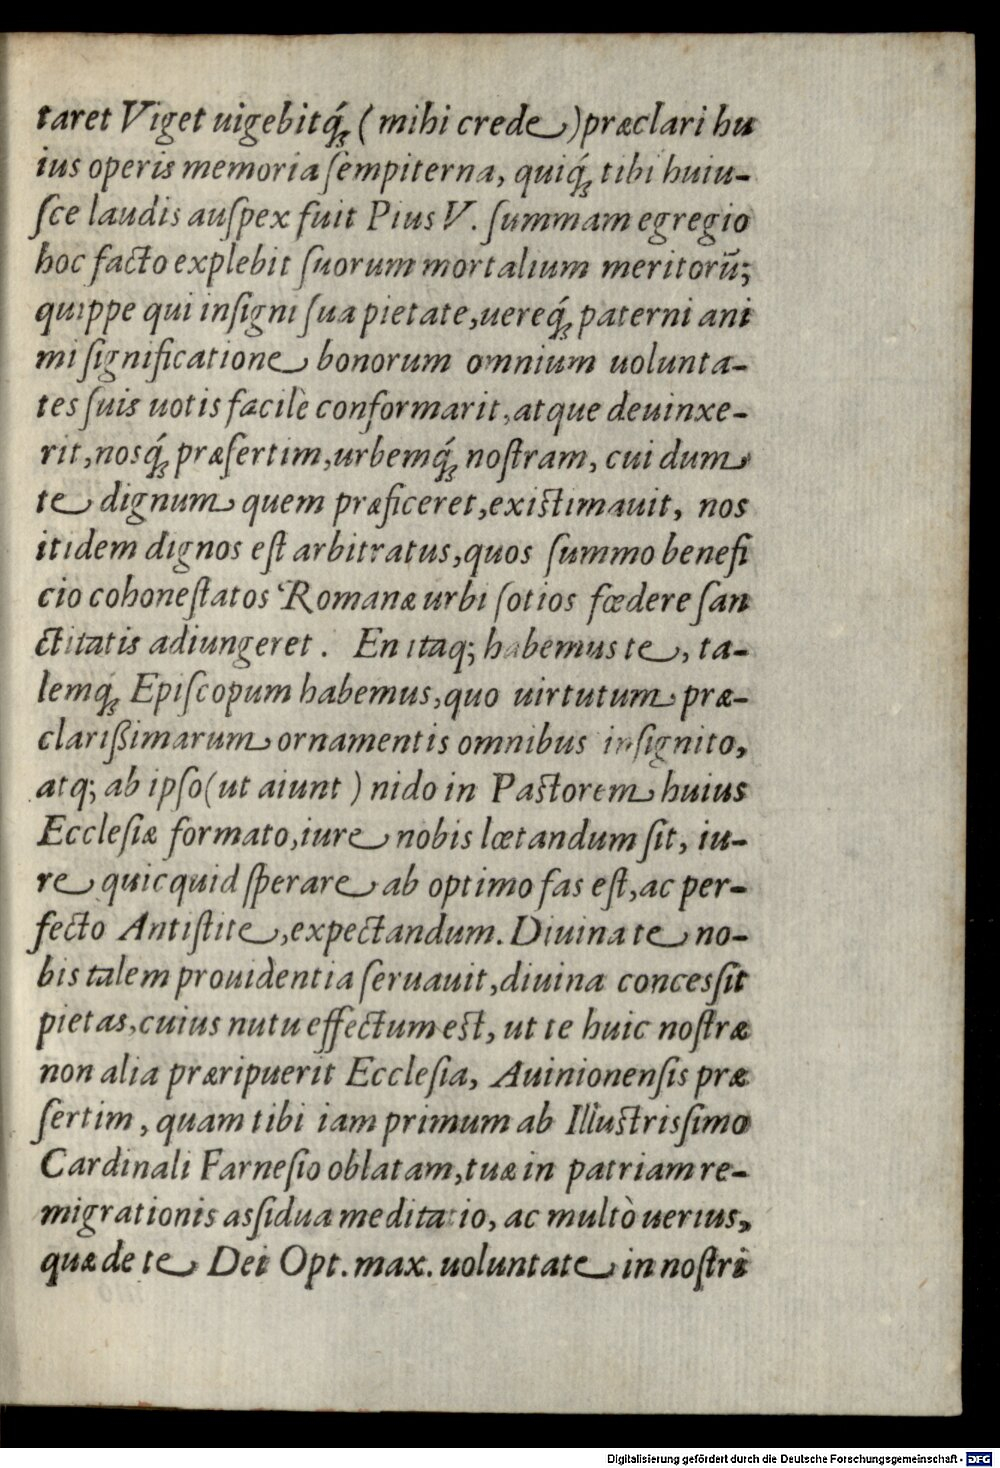 taret Viget uigebitq́ꝫ (mihi crede) præclari hu
ius operis memoria ſempiterna, quiq́ꝫ tibi huiu-
ſce laudis auſpex fuit Pius V. ſummam egregio
hoc facto explebit ſuorum mortalium meritorū;
quippe qui inſigni ſua pietate, uereq́ꝫ paterni ani
mi ſignificatione bonorum omnium uolunta-
tes ſuis uotis facilè conformarit, atque deuinxe-
rit, nosq́ꝫ præſertim, urbemq́ꝫ noſtram, cui dum
te dignum quem præficeret, existimauit, nos
itidem dignos eſt arbitratus, quos ſummo benefi
cio cohoneſtatos Romanæ urbi ſotios fœdere ſan
ctitatis adiungeret. En itaq; habemus te, ta-
lemq́ꝫ Epiſcopum habemus, quo uirtutum præ-
clarißimarum ornamentis omnibus inſignito,
atq; ab ipſo (ut aiunt) nido in Pastorem huius
Eccleſiæ formato, iure nobis lœtandum ſit, iu-
re quicquid ſperare ab optimo fas eſt, ac per-
fecto Antiſtite, expectandum. Diuina te no-
bis talem prouidentia ſeruauit, diuina concesſit
pietas, cuius nutu effectum est, ut te huic noſtræ
non alia præripuerit Eccleſia, Auinionenſis præ
ſertim, quam tibi iam primum ab Illustrisſimo
Cardinali Farneſio oblatam, tuæ in patriam re-
migrationis asſidua meditatio, ac multò uerius,
quæ de te Dei Opt. max. uoluntate in noſtri
Digitalisierung gefördert durch die Deutsche Forschungsgemeinschaft - DFG